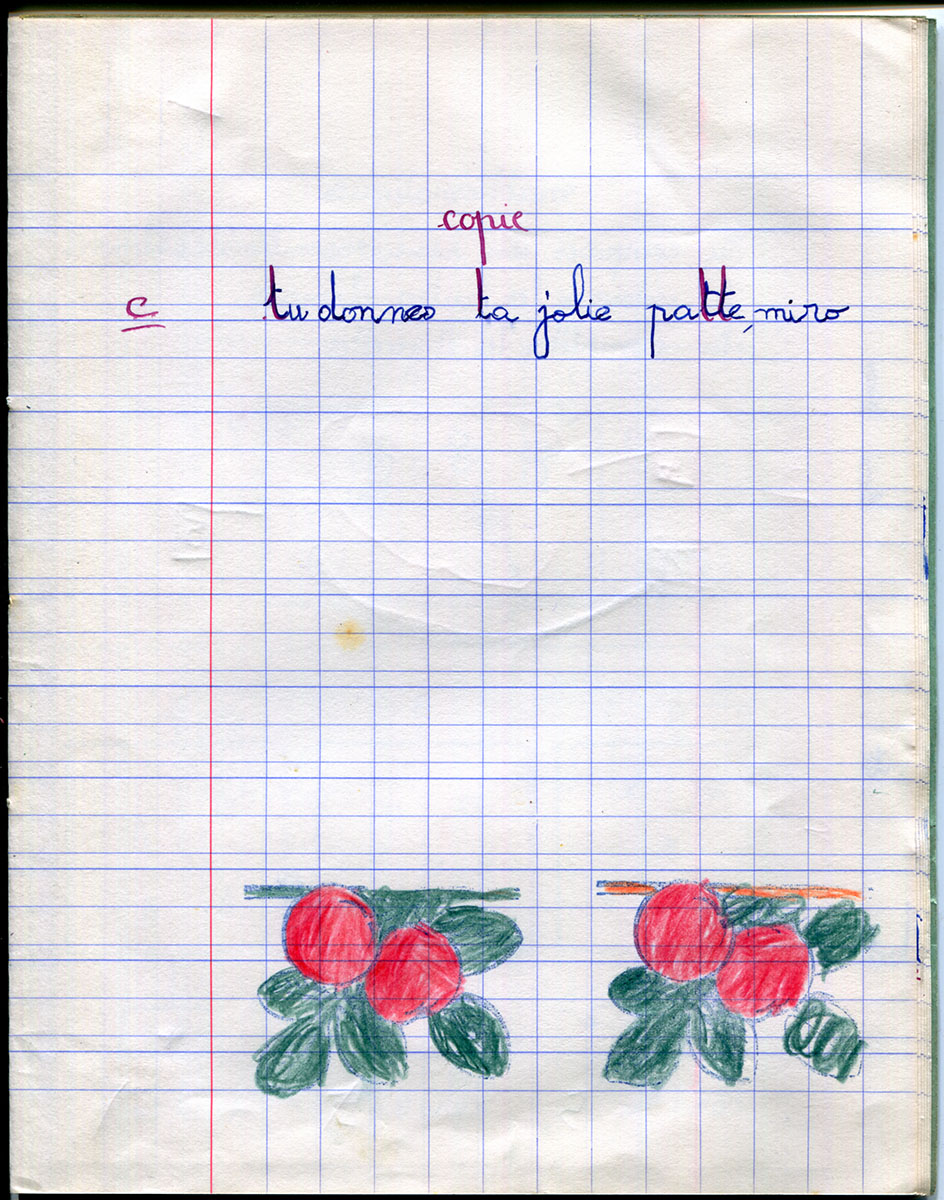 copie
c tu donnes ta jolie patte, miro